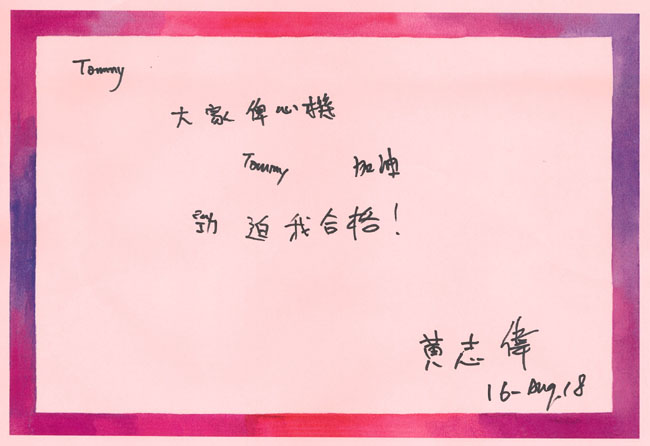 Tommy
大家俾心機
Tommy 加油
勁 迫我合格！
黃志偉
16-Aug,18